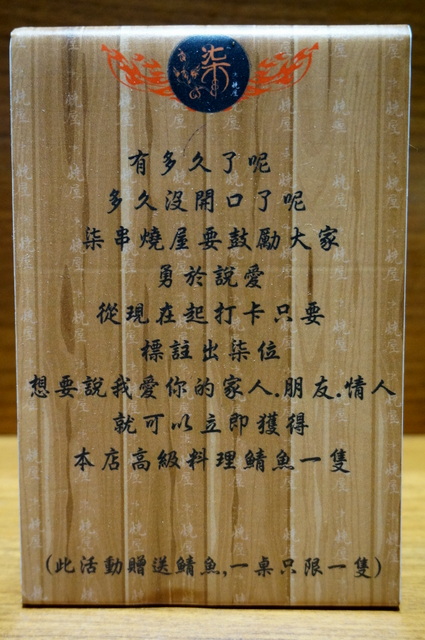 柒
燒屋
有多久了呢
多久沒開口了呢
柒串燒屋要鼓勵大家
勇於說愛
從現在起打卡只要
標註出柒位
想要說我愛你的家人.朋友.情人
就可以立即獲得
本店高級料理鯖魚一隻
(此活動贈送鯖魚,一桌只限一隻)